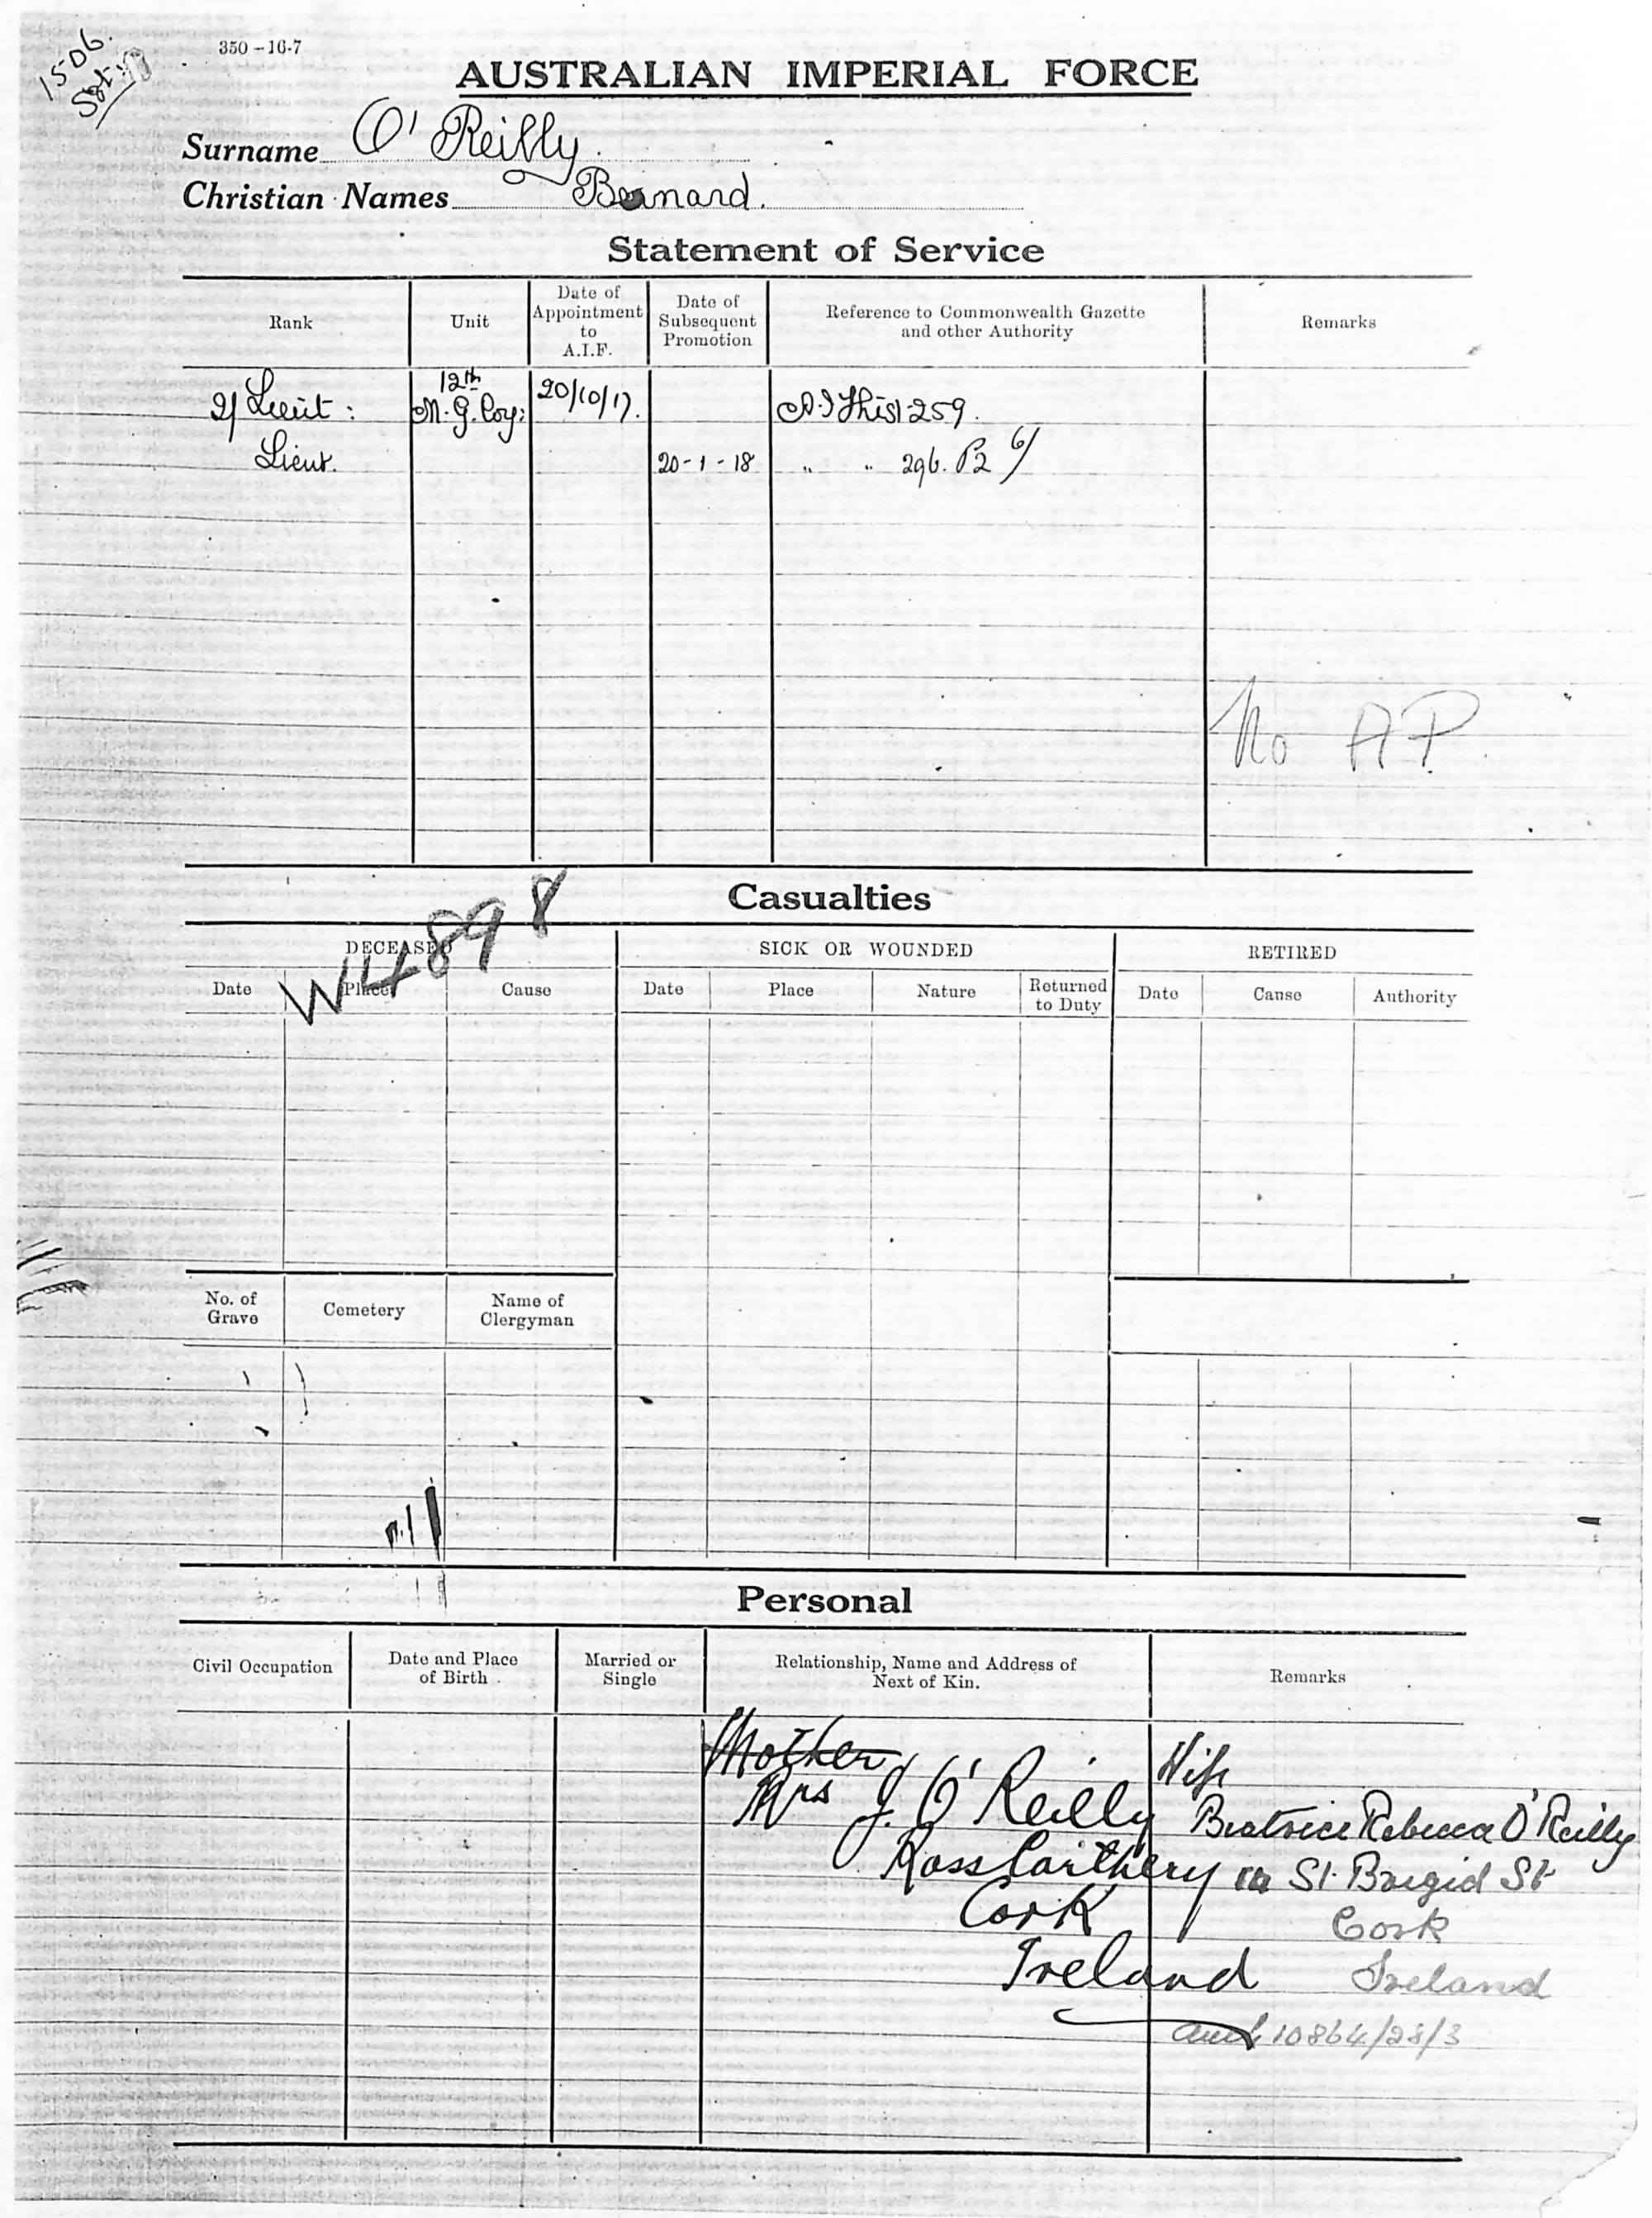 1506.
350-16-7
AUSTRALIAN IMPERIAL FORCE
Surname O'Reilly.
Christian Names Bernard.
Statement of Service
Rank
Unit
Date of
Appointment
to
A.I.F.
Date of
Subsequent
Promotion
Reference to Commonwealth Gazette
and other Authority
Remarks
2/Lieut:
12th
M.G.Coy:
20/10/17.
259.
Lieut.
20-1-18
" " 296. P2
No A P.
Casualties
W4898
DECEASED
SICK OR WOUNDED
RETIRED
Date
Place
Cause
Date
Place
Nature
Returned
to Duty
Date
Cause
Authority
No. of
Grave
Cemetery
Name of
Clergyman
Personal
Civil Occupation
Date and Place
of Birth
Married or
Single
Relationship, Name and Address of
Next of Kin.
Remarks
Mother
Mrs J. O'Reilly
Rosscarthery
Cork
Ireland
Wife
Beatrice Rebecca O'Reilly
St. Brigid St
Cork
Ireland
10864/28/3